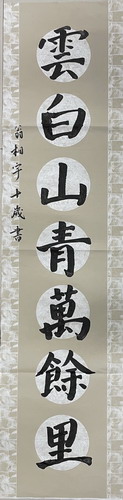 雲白山青萬餘里
翁相宇十歲書